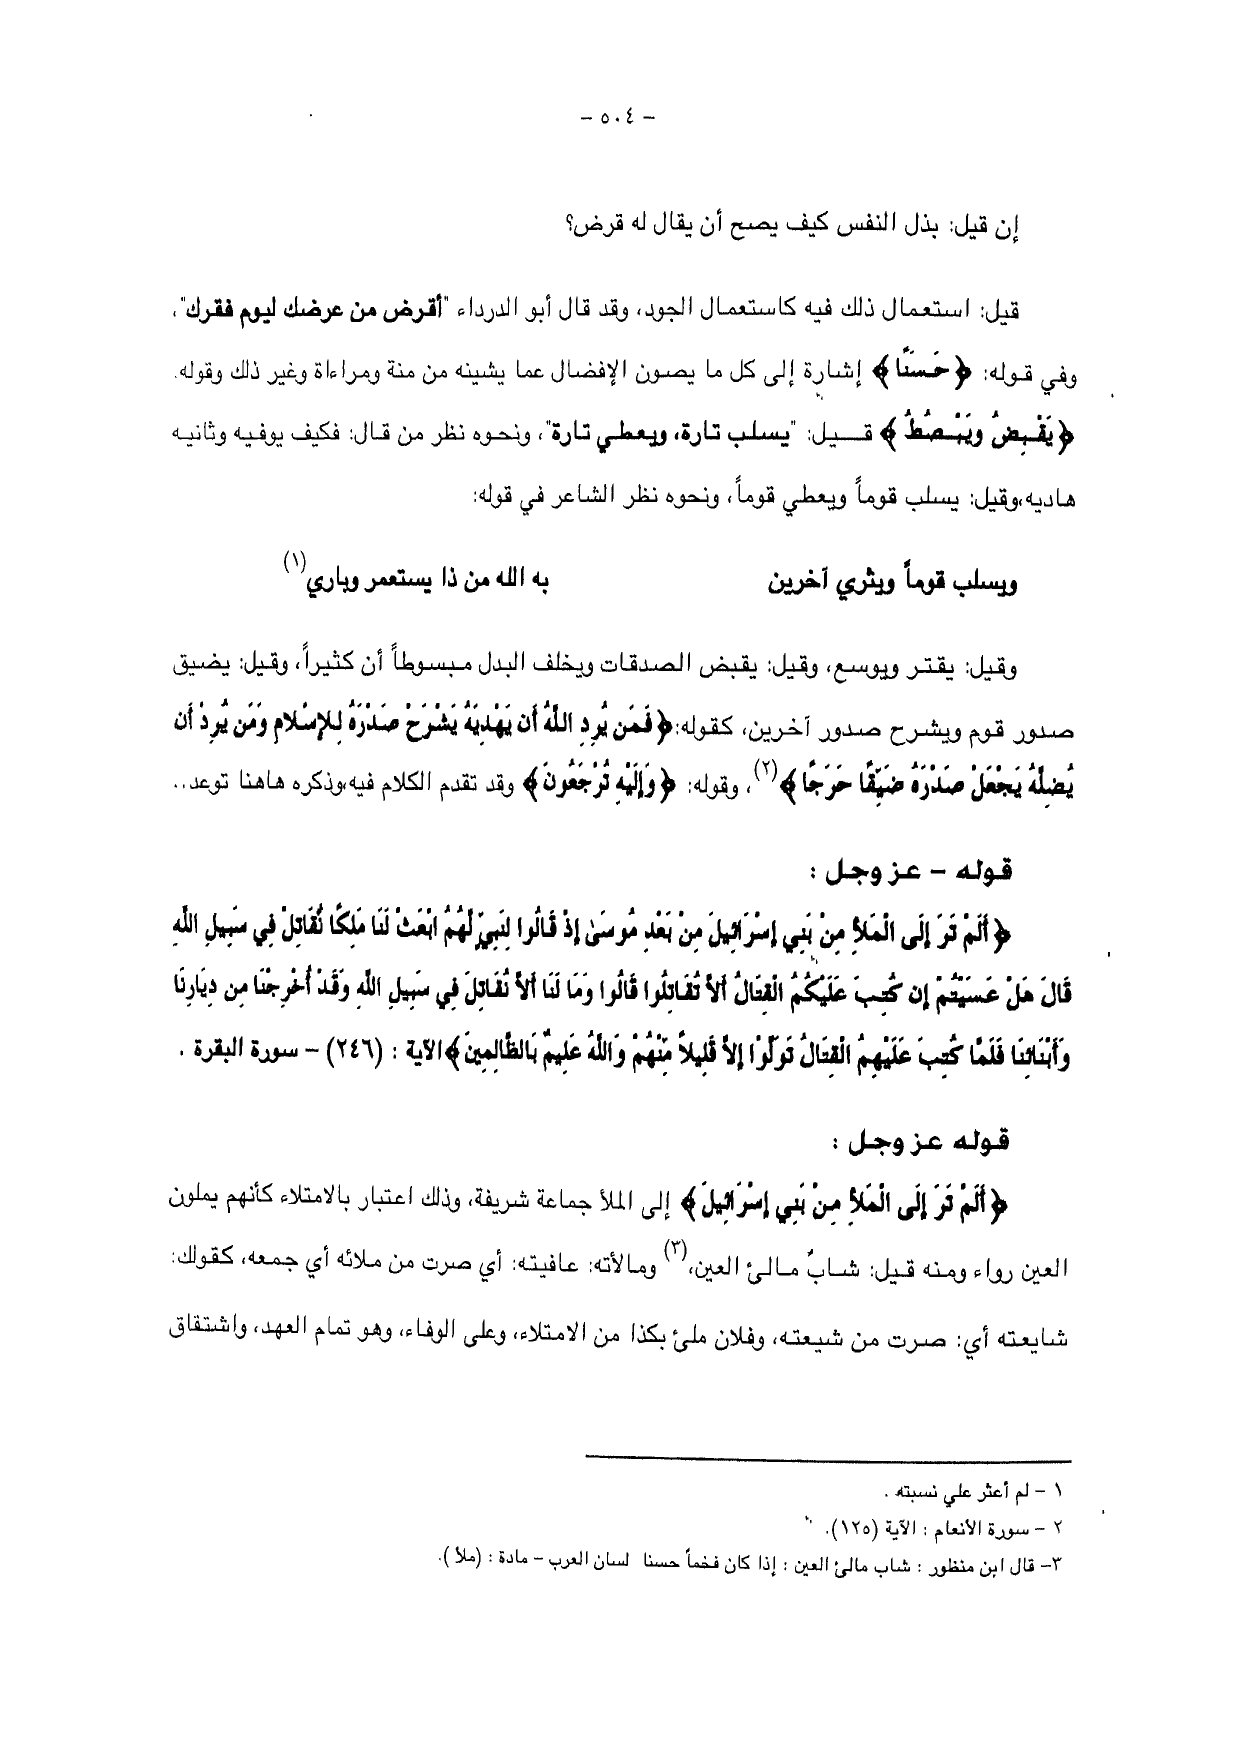 - ٥٠٤ -
إن قيل: بذل النفس كيف يصح أن يقال له قرض؟
قيل: استعمال ذلك فيه كاستعمال الجود، وقد قال أبو الدرداء "أقرض من عرضك ليوم فقرك"،
وفي قوله: ﴿حَسَنًا﴾ إشارة إلى كل ما يصون الإفضال عما يشينه من منة ومراءاة وغير ذلك وقوله.
﴿يَقْبِضُ وَيَبْصُطُ﴾ قيل: "يسلب تارة، ويعطي تارة"، ونحوه نظر من قال: فكيف يوفيه وثانيه
هاديه،وقيل: يسلب قوماً ويعطي قوماً، ونحوه نظر الشاعر في قوله:
ويسلب قوماً ويثري آخرين به الله من ذا يستعمر وباري(١)
وقيل: يقتر ويوسع، وقيل: يقبض الصدقات ويخلف البدل مبسوطاً أن كثيراً، وقيل: يضيق
صدور قوم ويشرح صدور آخرين، كقوله:﴿فَمَن يُرِدِ اللَّهُ أَن يَهْدِيَهُ يَشْرَحْ صَدْرَهُ لِلإِسْلَامِ وَمَن يُرِدْ أَن
يُضِلَّهُ يَجْعَلْ صَدْرَهُ ضَيِّقًا حَرَجًا﴾(٢)، وقوله: ﴿وَإِلَيْهِ تُرْجَعُونَ﴾ وقد تقدم الكلام فيه،وذكره هاهنا توعد..
قوله – عز وجل :
﴿أَلَمْ تَرَ إِلَى الْمَلَأِ مِنْ بَنِي إِسْرَائِيلَ مِنْ بَعْدِ مُوسَىٰ إِذْ قَالُوا لِنَبِيٍّ لَهُمُ ابْعَثْ لَنَا مَلِكًا نُقَاتِلْ فِي سَبِيلِ اللَّهِ
قَالَ هَلْ عَسَيْتُمْ إِن كُتِبَ عَلَيْكُمُ الْقِتَالُ أَلاَّ تُقَاتِلُوا قَالُوا وَمَا لَنَا أَلاَّ نُقَاتِلَ فِي سَبِيلِ اللَّهِ وَقَدْ أُخْرِجْنَا مِن دِيَارِنَا
وَأَبْنَائِنَا فَلَمَّا كُتِبَ عَلَيْهِمُ الْقِتَالُ تَوَلَّوْا إِلاَّ قَلِيلاً مِّنْهُمْ وَاللَّهُ عَلِيمٌ بِالظَّالِمِينَ﴾الآية : (٢٤٦) – سورة البقرة .
قوله عز وجل :
﴿أَلَمْ تَرَ إِلَى الْمَلَأِ مِنْ بَنِي إِسْرَائِيلَ﴾ إلى الملأ جماعة شريفة، وذلك اعتبار بالامتلاء كأنهم يملون
العين رواء ومنه قيل: شابٌ مالئ العين،(٣) ومالأته: عافيته: أي صرت من ملائه أي جمعه، كقولك:
شايعته أي: صرت من شيعته، وفلان ملئ بكذا من الامتلاء، وعلى الوفاء، وهو تمام العهد، واشتقاق
١ – لم أعثر علي نسبته .
٢ – سورة الأنعام : الآية (١٢٥).
٣– قال ابن منظور : شاب مالئ العين : إذا كان فخماً حسنا لسان العرب – مادة : (ملأ ).